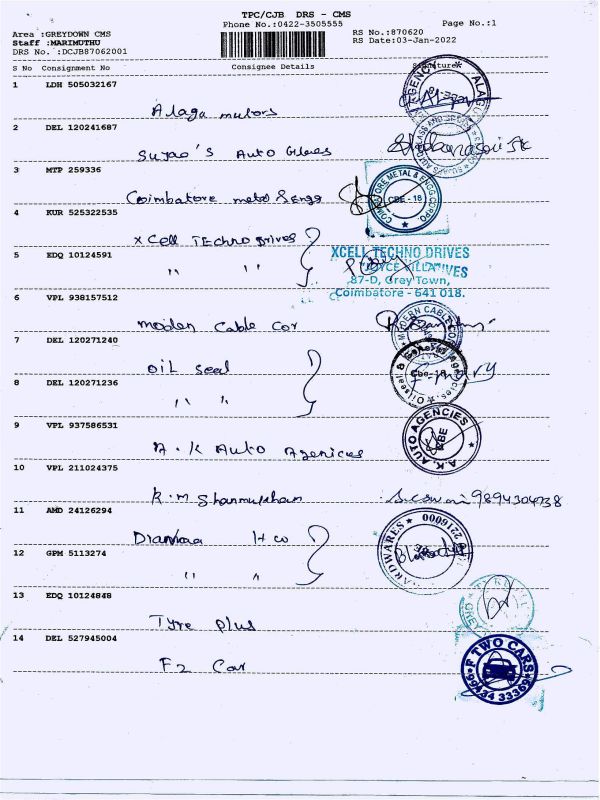 TPC/CJB DRS - CMS
Phone No.:0422-3505555
Page No.:1
Area :GREYDOWN CMS
Staff :MARIMUTHU
DRS No. :DCJB87062001
RS No.:870620
RS Date:03-Jan-2022
S No Consignment No Consignee Details Signature
1 LDH 505032167
Alaga motors
2 DEL 120241687
Auto Glass
3 MTP 259336
Coimbatore metal & Engg
COIMBATORE METAL & ENGG. CORPO. CBE - 18
4 KUR 525322535
X Cell Techno Drives
5 EDQ 10124591
" "
XCELL TECHNO DRIVES
87-D, Grey Town,
Coimbatore - 641 018.
6 VPL 938157512
moden Cable Cor
MODERN CABLE CO
7 DEL 120271240
oil seal
8 DEL 120271236
" "
Oilseal & Agencies. Cbe-18
9 VPL 937586531
A.K Auto Agencies
A.K. AUTO AGENCIES CBE
10 VPL 211024375
R.M Shanmukham
9894304738
11 AMD 24126294
H co
12 GPM 5113274
" "
HARDWARES 2216000
13 EDQ 10124848
Tyre plus
14 DEL 527945004
F2 Car
F TWO CARS
99434 33369